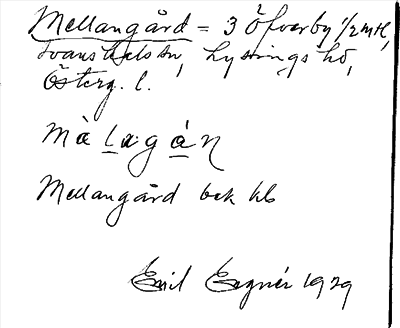 Mellangård = 3 Öfverby 1/2 mtl,
Svanshals sn, Lysings hd,
Österg. l.
màlagán
Mellangård bek kb
Emil Egnér 1929